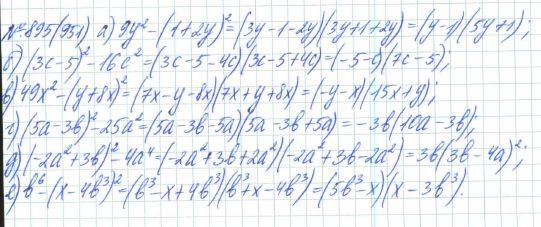 № 895(951) а) 9y²-(1+2y)²=(3y-1-2y)(3y+1+2y)=(y-1)(5y+1);
б) (3c-5)²-16c²=(3c-5-4c)(3c-5+4c)=(-5-c)(7c-5);
в) 49x²-(y+8x)²=(7x-y-8x)(7x+y+8x)=(-y-x)(15x+y);
г) (5a-3b)²-25a²=(5a-3b-5a)(5a-3b+5a)=-3b(10a-3b);
д) (-2a²+3b)²-4a⁴=(-2a²+3b+2a²)(-2a²+3b-2a²)=3b(3b-4a)²;
е) b⁶-(x-4b³)²=(b³-x+4b³)(b³+x-4b³)=(5b³-x)(x-3b³).